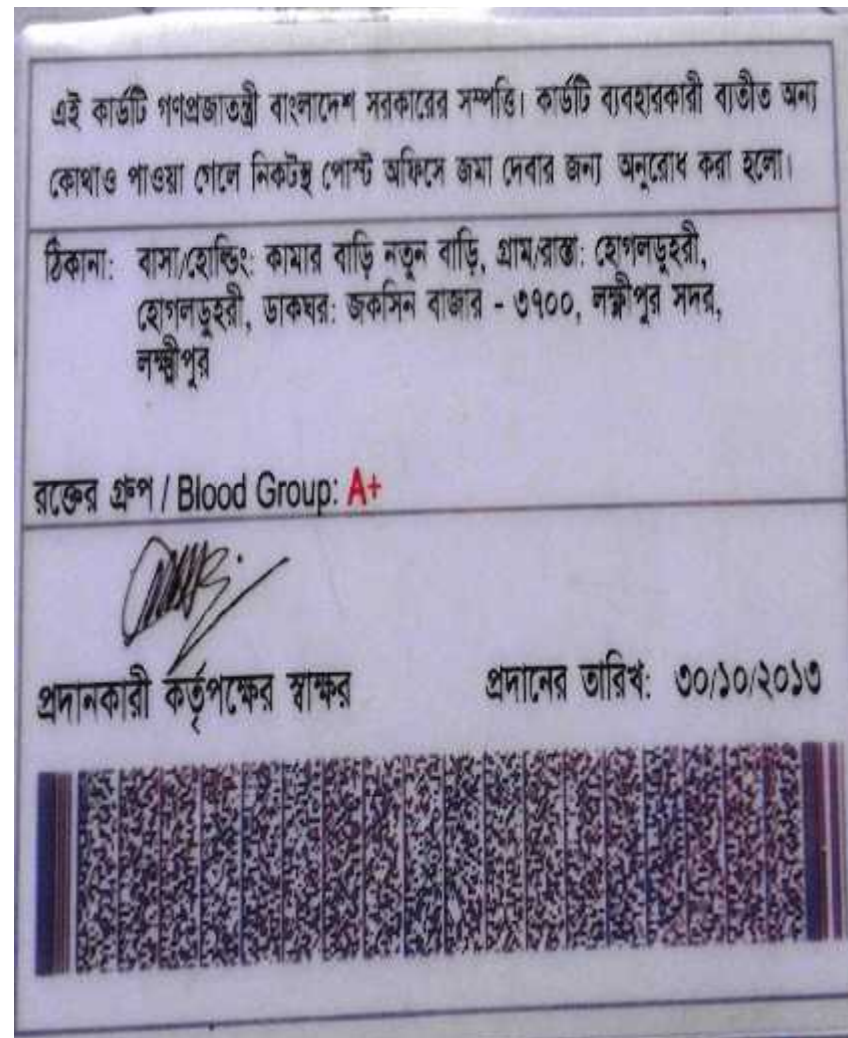 এই কার্ডটি গণপ্রজাতন্ত্রী বাংলাদেশ সরকারের সম্পত্তি। কার্ডটি ব্যবহারকারী ব্যতীত অন্য
কোথাও পাওয়া গেলে নিকটস্থ পোস্ট অফিসে জমা দেবার জন্য অনুরোধ করা হলো।
ঠিকানা: বাসা/হোল্ডিং: কামার বাড়ি নতুন বাড়ি, গ্রাম/রাস্তা: হোগলডুহরী,
হোগলডুহরী, ডাকঘর: জকসিন বাজার - ৩৭০০, লক্ষ্মীপুর সদর,
লক্ষ্মীপুর
রক্তের গ্রুপ / Blood Group: A+
প্রদানকারী কর্তৃপক্ষের স্বাক্ষর প্রদানের তারিখ: ৩০/১০/২০১৩